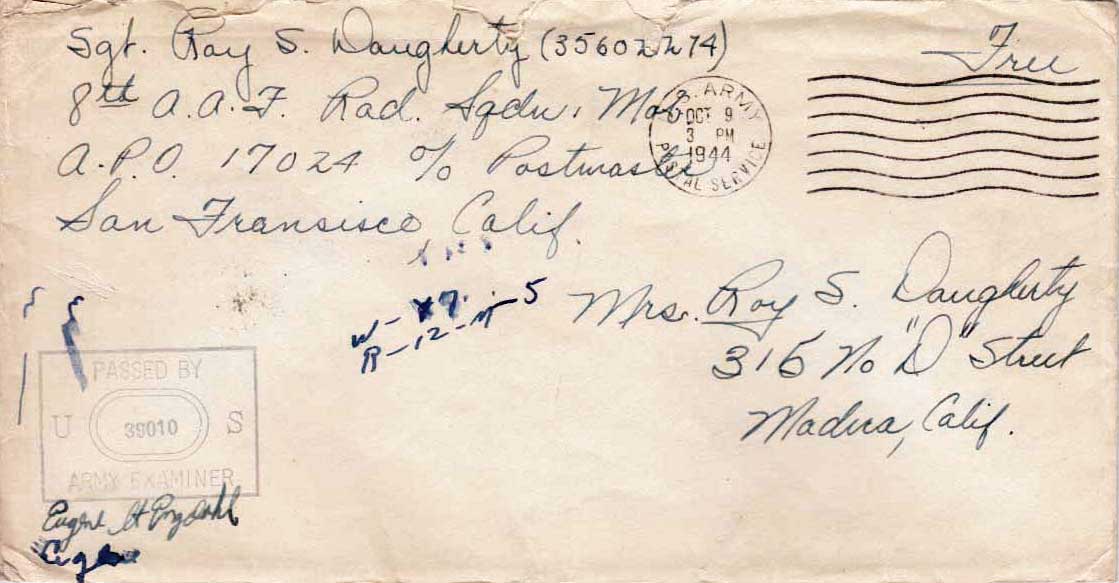 Sgt. Roy S. Daugherty (35602274)
8th A.A.F. Rad. Sqdn. Mob.
A.P.O. 17024 c/o Postmaster
San Fransisco Calif.
Free
U.S. ARMY
OCT 9
3 PM
1944
POSTAL SERVICE
Mrs. Roy S. Daugherty
315 No "D" Street
Madera, Calif.
W-
R-12-
5
PASSED BY
U 39010 S
ARMY EXAMINER
Eugene